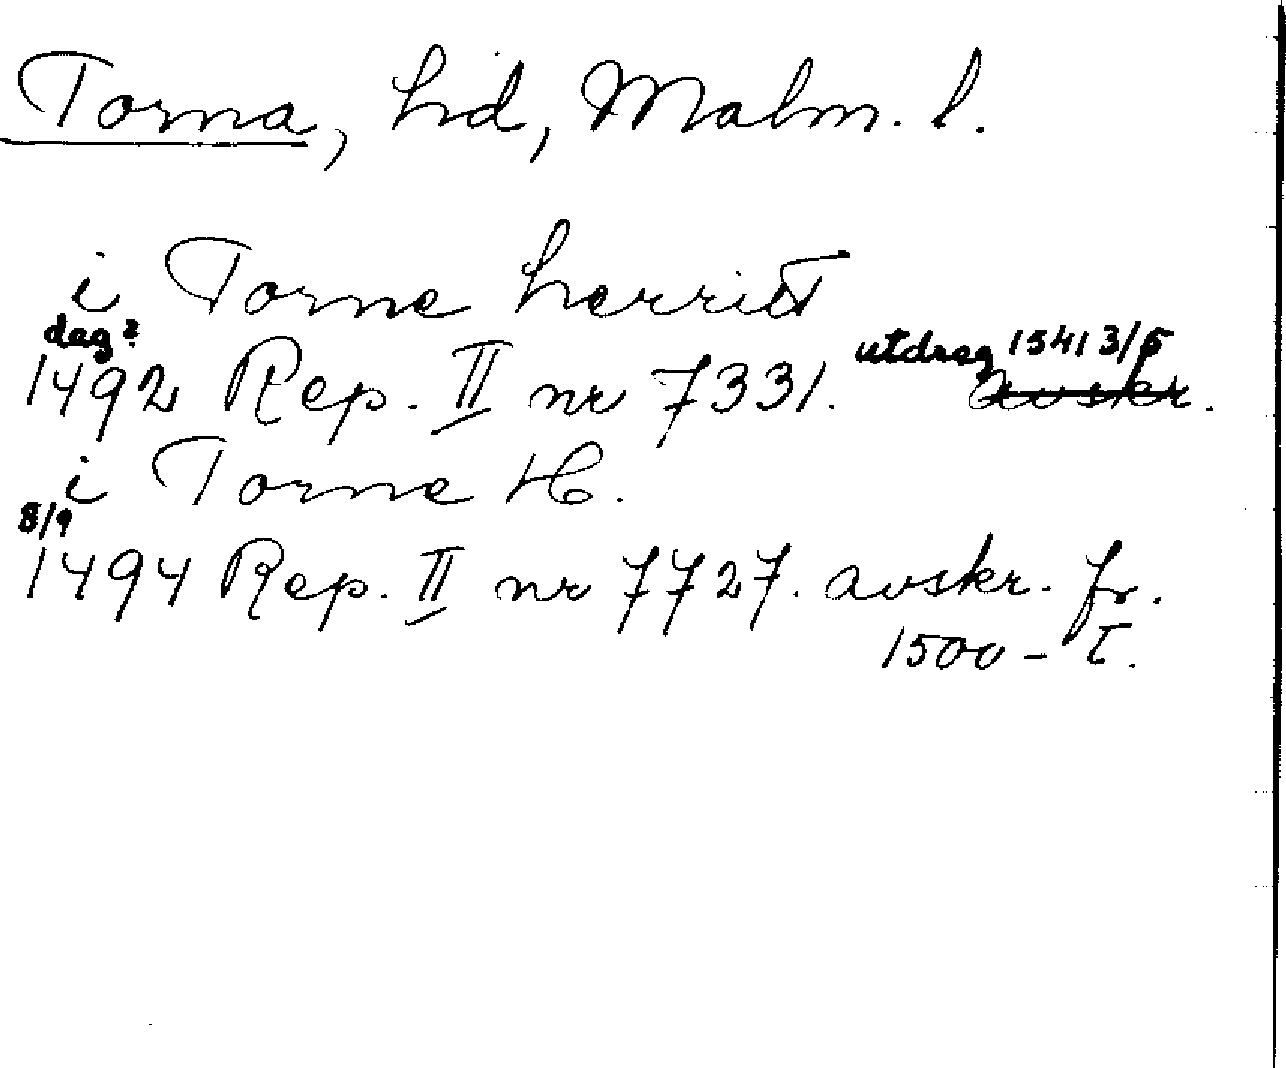 Torna, hd, Malm. l.
i Torne herrit
dag?
1492 Rep. II nr 7331. utdrag 1541 3/5
avskr.
i Torne H.
8/9
1494 Rep. II nr 7727. avskr. fr.
1500-t.